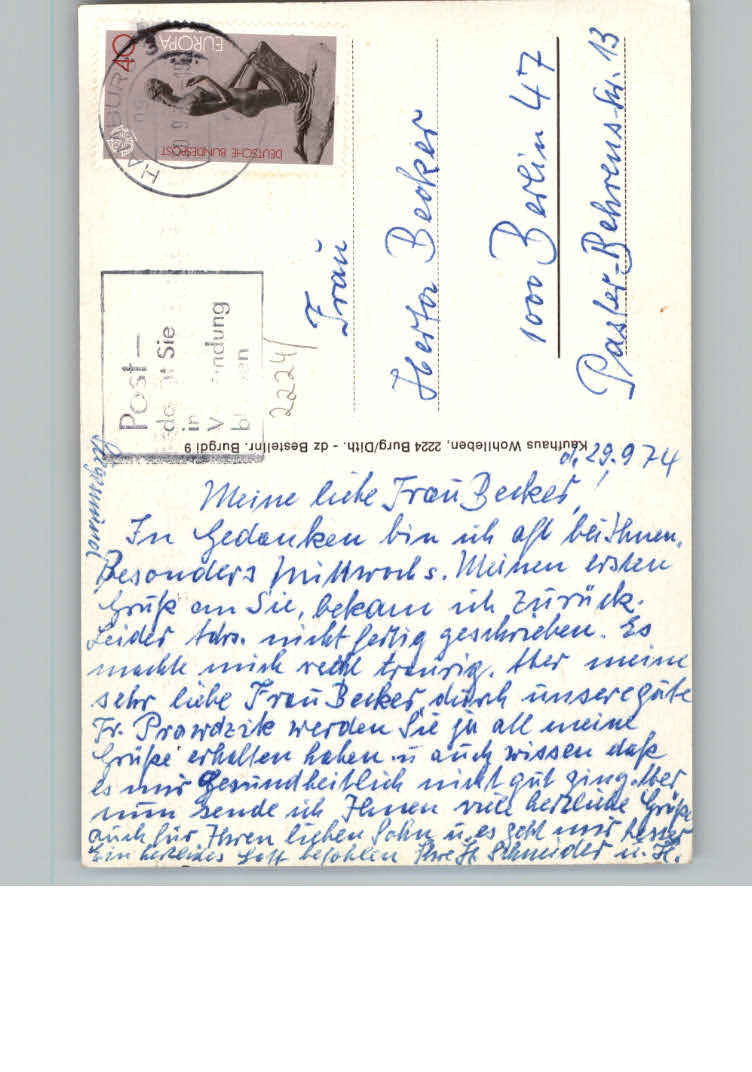 40
EUROPA
DEUTSCHE BUNDESPOST
Post –
Sie
in
2224/
Frau
Herta Becker
1000 Berlin 47
Paster-Behrens-Str. 13
Kaufhaus Wohlleben, 2224 Burg/Dith. - dz Bestellnr. Burgdi 9
d. 29.9.74
Meine liebe Frau Becker!
In Gedanken bin ich oft bei Ihnen.
Besonders Mittwochs. Meinen ersten
Gruß an Sie, bekam ich zurück.
Leider Adrs. nicht fertig geschrieben. Es
machte mich recht traurig. Aber meine
sehr liebe Frau Becker, durch unsere gute
Fr. Prawdzik werden Sie ja all meine
Grüße erhalten haben u. auch wissen daß
es mir Gesundheitlich nicht gut ging. Aber
nun sende ich Ihnen viele herzliche Grüße
auch für Ihren lieben Sohn u. es geht mir besser
Ein herzliches Gott befohlen Ihre H. Schneider u. H.